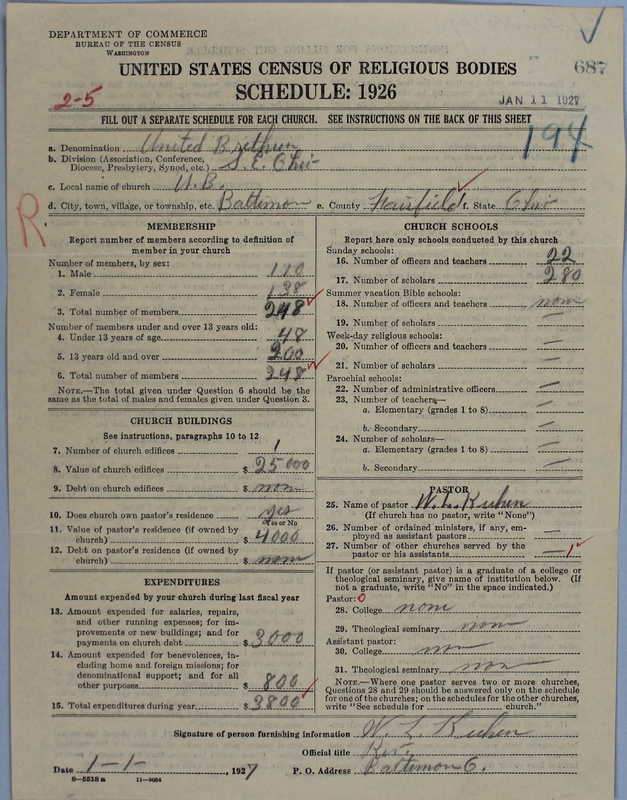 DEPARTMENT OF COMMERCE
BUREAU OF THE CENSUS
WASHINGTON
UNITED STATES CENSUS OF RELIGIOUS BODIES
687
2-5
SCHEDULE: 1926
JAN 11 1927
FILL OUT A SEPARATE SCHEDULE FOR EACH CHURCH. SEE INSTRUCTIONS ON THE BACK OF THIS SHEET
194
a. Denomination United Brethren
b. Division (Association, Conference, Diocese, Presbytery, Synod, etc.) S.E. Ohio
c. Local name of church U.B.
d. City, town, village, or township, etc. Baltimore e. County Fairfield f. State Ohio
R
MEMBERSHIP
Report number of members according to definition of
member in your church
Number of members, by sex:
1. Male 110
2. Female 138
3. Total number of members 248
Number of members under and over 13 years old:
4. Under 13 years of age 48
5. 13 years old and over 200
6. Total number of members 248
NOTE.—The total given under Question 6 should be
same as the total of males and females given under Question 3.
CHURCH BUILDINGS
See instructions, paragraphs 10 to 12
7. Number of church edifices 1
8. Value of church edifices $ 25000
9. Debt on church edifices $ none
10. Does church own pastor's residence yes
Yes or No
11. Value of pastor's residence (if owned by
church) $ 4000
12. Debt on pastor's residence (if owned by
church) $ none
EXPENDITURES
Amount expended by your church during last fiscal year
13. Amount expended for salaries, repairs,
and other running expenses; for im-
provements or new buildings; and for
payments on church debt $ 3000
14. Amount expended for benevolences, in-
cluding home and foreign missions; for
denominational support; and for all
other purposes $ 800
15. Total expenditures during year $ 3800
CHURCH SCHOOLS
Report here only schools conducted by this church
Sunday schools:
16. Number of officers and teachers 22
17. Number of scholars 280
Summer vacation Bible schools:
18. Number of officers and teachers none
19. Number of scholars —
Week-day religious schools:
20. Number of officers and teachers —
21. Number of scholars —
Parochial schools:
22. Number of administrative officers —
23. Number of teachers—
a. Elementary (grades 1 to 8) —
b. Secondary —
24. Number of scholars—
a. Elementary (grades 1 to 8) —
b. Secondary —
PASTOR
25. Name of pastor W. L.
(If church has no pastor, write "None")
26. Number of ordained ministers, if any, em-
ployed as assistant pastors —
27. Number of other churches served by the
pastor or his assistants — 1
If pastor (or assistant pastor) is a graduate of a college or
theological seminary, give name of institution below. (If
not a graduate, write "No" in the space indicated.)
Pastor: 0
28. College none
29. Theological seminary none
Assistant pastor:
30. College none
31. Theological seminary none
NOTE.—Where one pastor serves two or more churches,
Questions 28 and 29 should be answered only on the schedule
for one of the churches; on the schedules for the other churches,
write "See schedule for church."
Signature of person furnishing information W. L.
Official title Rev.
Date 1-1-, 1927 P. O. Address Baltimore O.
8-5518a 11-9054